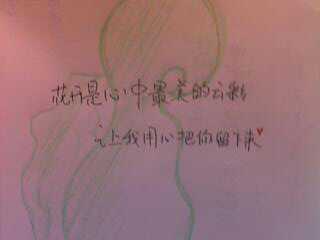 花开是心中最美的云彩
让我用心把你留下来